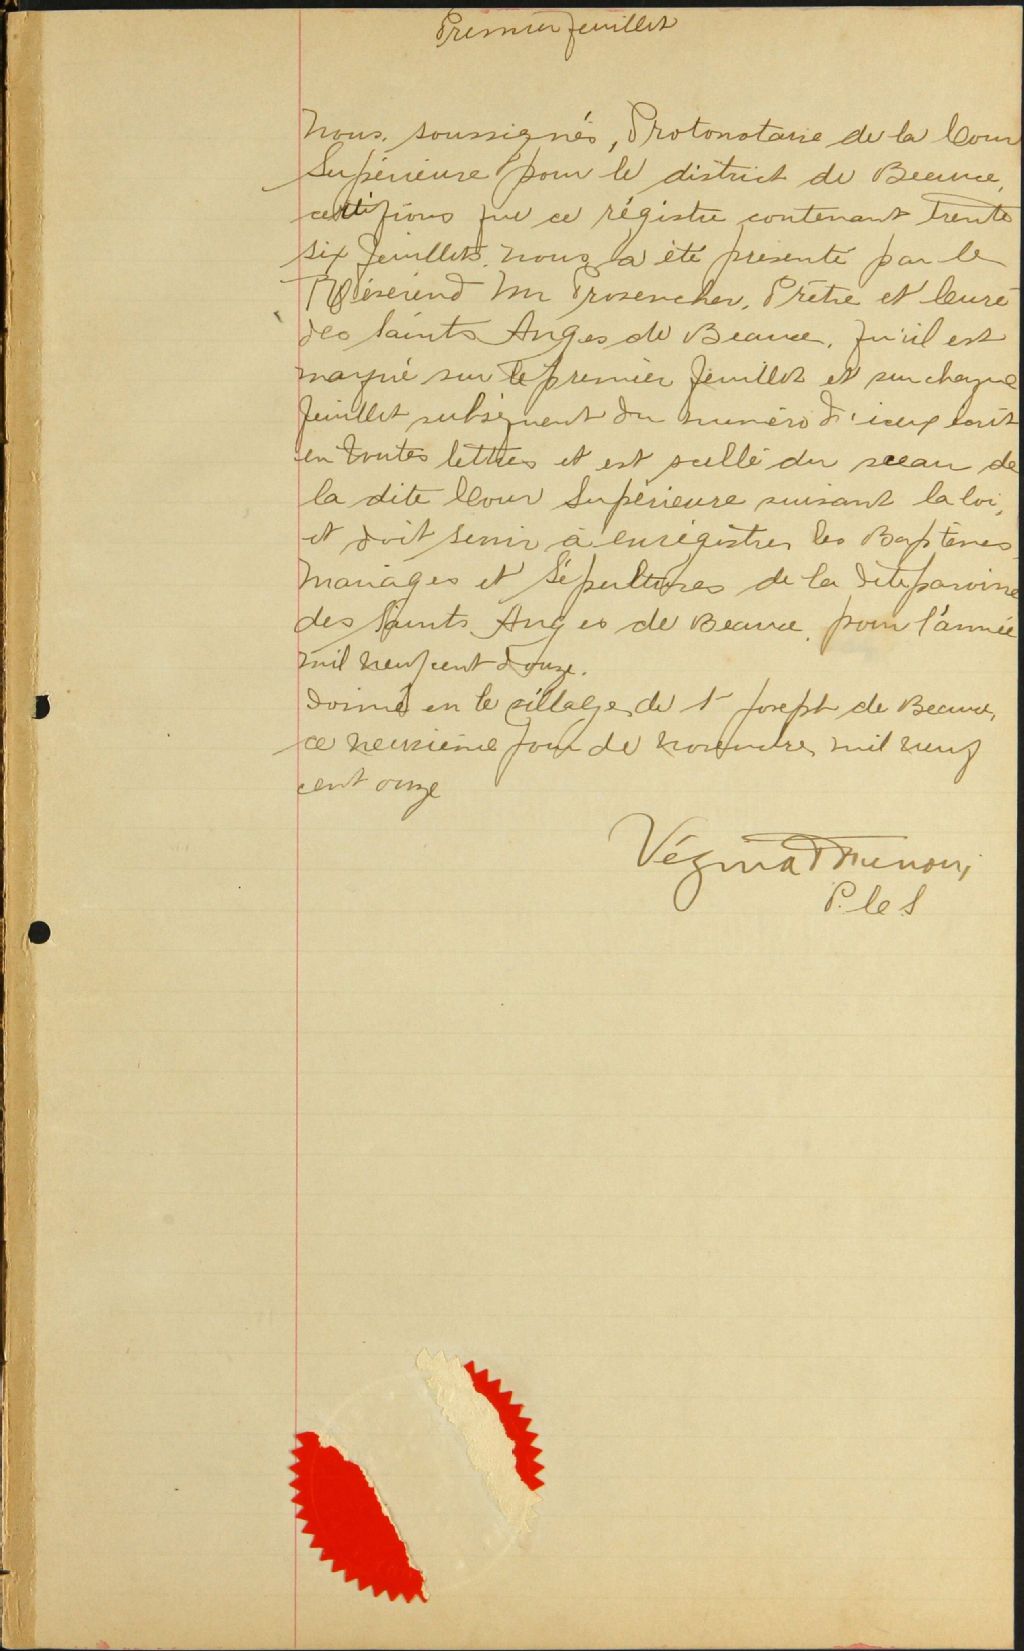 Premier feuillet
Nous, soussignés, Protonotaire de la Cour
Supérieure pour le district de Beauce,
certifions que ce régistre contenant trente
six feuillets, nous a été présenté par le
Révérend Mr Prosencher, Prêtre et Curé
des Saints Anges de Beauce, qu'il est
marqué sur le premier feuillet et sur chaque
feuillet subséquent du numéro d'iceux écrit
en toutes lettres et est scellé du sceau de
la dite Cour Supérieure suivant la loi,
et doit servir à enrégistrer les Baptêmes
Mariages et Sépultures de la dite paroisse
des Saints Anges de Beauce, pour l'année
mil neuf cent douze.
Donné en le village de St Joseph de Beauce,
ce neuvième jour de novembre mil neuf
cent onze
Vézina
P. C S